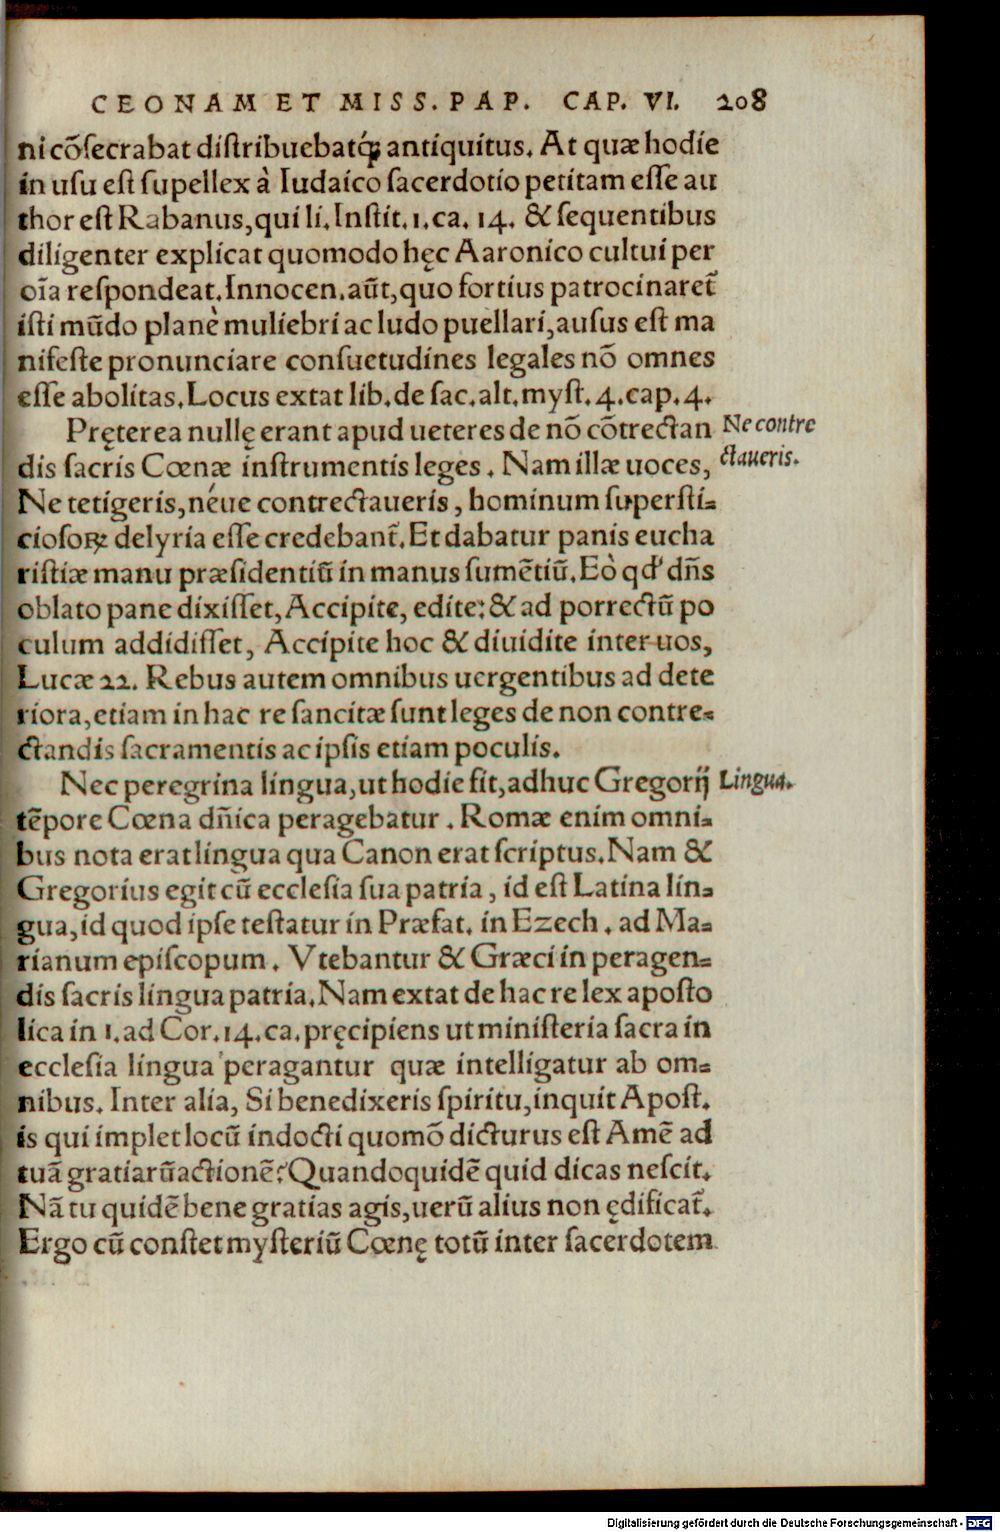 CEONAM ET MISS. PAP. CAP. VI. 208
ni cōſecrabat diſtribuebatq́ꝫ antiquitus. At quæ hodie
in uſu eſt ſupellex à Iudaico ſacerdotio petitam eſſe au
thor eſt Rabanus, qui li. Inſtit. 1. ca. 14. & ſequentibus
diligenter explicat quomodo hęc Aaronico cultui per
oīa reſpondeat. Innocen. aūt, quo fortius patrocinaret᷑
iſti mūdo planè muliebri ac ludo puellari, auſus eſt ma
nifeſte pronunciare conſuetudines legales nō omnes
eſſe abolitas. Locus extat lib. de ſac. alt. myſt. 4. cap. 4.
Pręterea nullę erant apud ueteres de nō cōtrectan
Ne contre
dis ſacris Cœnæ inſtrumentis leges. Nam illæ uoces,
ctaueris.
Ne tetigeris, néue contrectaueris, hominum ſuperſti⸗
cioſoꝝ delyria eſſe credebant᷑. Et dabatur panis eucha
riſtiæ manu præſidentiū in manus ſumētiū. Eò qd' dn̄s
oblato pane dixiſſet, Accipite, edite: & ad porrectū po
culum addidiſſet, Accipite hoc & diuidite inter uos,
Lucæ 22. Rebus autem omnibus uergentibus ad dete
riora, etiam in hac re ſancitæ ſunt leges de non contre⸗
ctandis ſacramentis ac ipſis etiam poculis.
Nec peregrina lingua, ut hodie fit, adhuc Gregorij
Lingua.
tēpore Cœna dn̄ica peragebatur. Romæ enim omni⸗
bus nota erat lingua qua Canon erat ſcriptus. Nam &
Gregorius egit cū eccleſia ſua patria, id eſt Latina lin⸗
gua, id quod ipſe teſtatur in Præfat. in Ezech. ad Ma⸗
rianum epiſcopum. Vtebantur & Græci in peragen⸗
dis ſacris lingua patria. Nam extat de hac re lex apoſto
lica in 1. ad Cor. 14. ca. pręcipiens ut miniſteria ſacra in
eccleſia lingua peragantur quæ intelligatur ab om⸗
nibus. Inter alia, Si benedixeris ſpiritu, inquit Apoſt.
is qui implet locū indocti quomō dicturus eſt Amē ad
tuā gratiarū actionē? Quandoquidē quid dicas neſcit.
Nā tu quidē bene gratias agis, uerū alius non ędificat᷑.
Ergo cū conſtet myſteriū Cœnę totū inter ſacerdotem
Digitalisierung gefördert durch die Deutsche Forschungsgemeinschaft - DFG